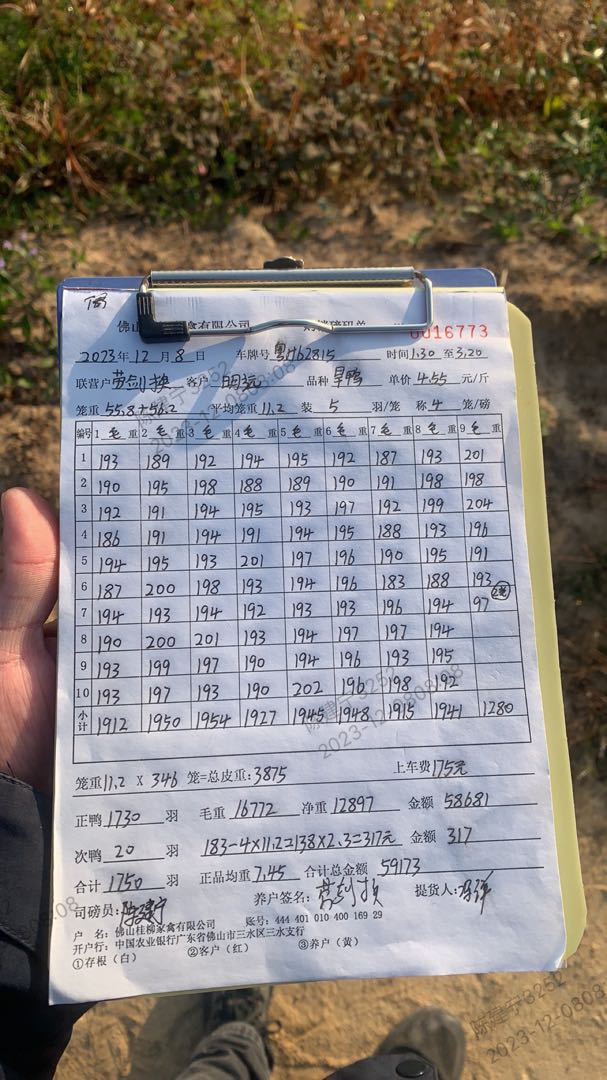 佛山 家禽有限公司 0016773
2023年12月8日 车牌号粤H62815 时间1.30至3.20
联营户 劳剑换 客户 明远 品种 旱鸭 单价4.55元/斤
笼重55.8+56.2 平均笼重11.2 装 5 羽/笼 称 4 笼/磅
编号 1毛重 2毛重 3毛重 4毛重 5毛重 6毛重 7毛重 8毛重 9毛重
1 193 189 192 194 195 192 187 193 201
2 190 195 198 188 189 190 191 198 198
3 192 191 194 195 193 197 192 199 204
4 186 191 194 191 194 195 188 193 196
5 194 195 193 201 197 196 190 195 191
6 187 200 198 193 194 196 183 188 193
7 194 193 194 192 193 193 196 194 97
8 190 200 201 193 194 197 197 194
9 193 199 197 190 194 196 193 195
10 193 197 193 190 202 196 198 192
小计 1912 1950 1954 1927 1945 1948 1915 1941 1280
笼重11.2 X 346 笼=总皮重:3875 上车费175元
正鸭1730羽 毛重16772 净重12897 金额58681
次鸭20羽 183-4×11.2=138×2.3=317元 金额317
合计1750羽 正品均重7.45 合计总金额59173
司磅员:陈建宁 养户签名:劳剑换 提货人:
户 名:佛山桂柳家禽有限公司 账号:444 401 010 400 169 29
开户行:中国农业银行广东省佛山市三水区三水支行
①存根(白) ②客户(红) ③养户(黄)
陈建宁3252
2023-12-0808:08
陈建宁3252
2023-12-0808:08
陈建宁3252
2023-12-0808
08:08